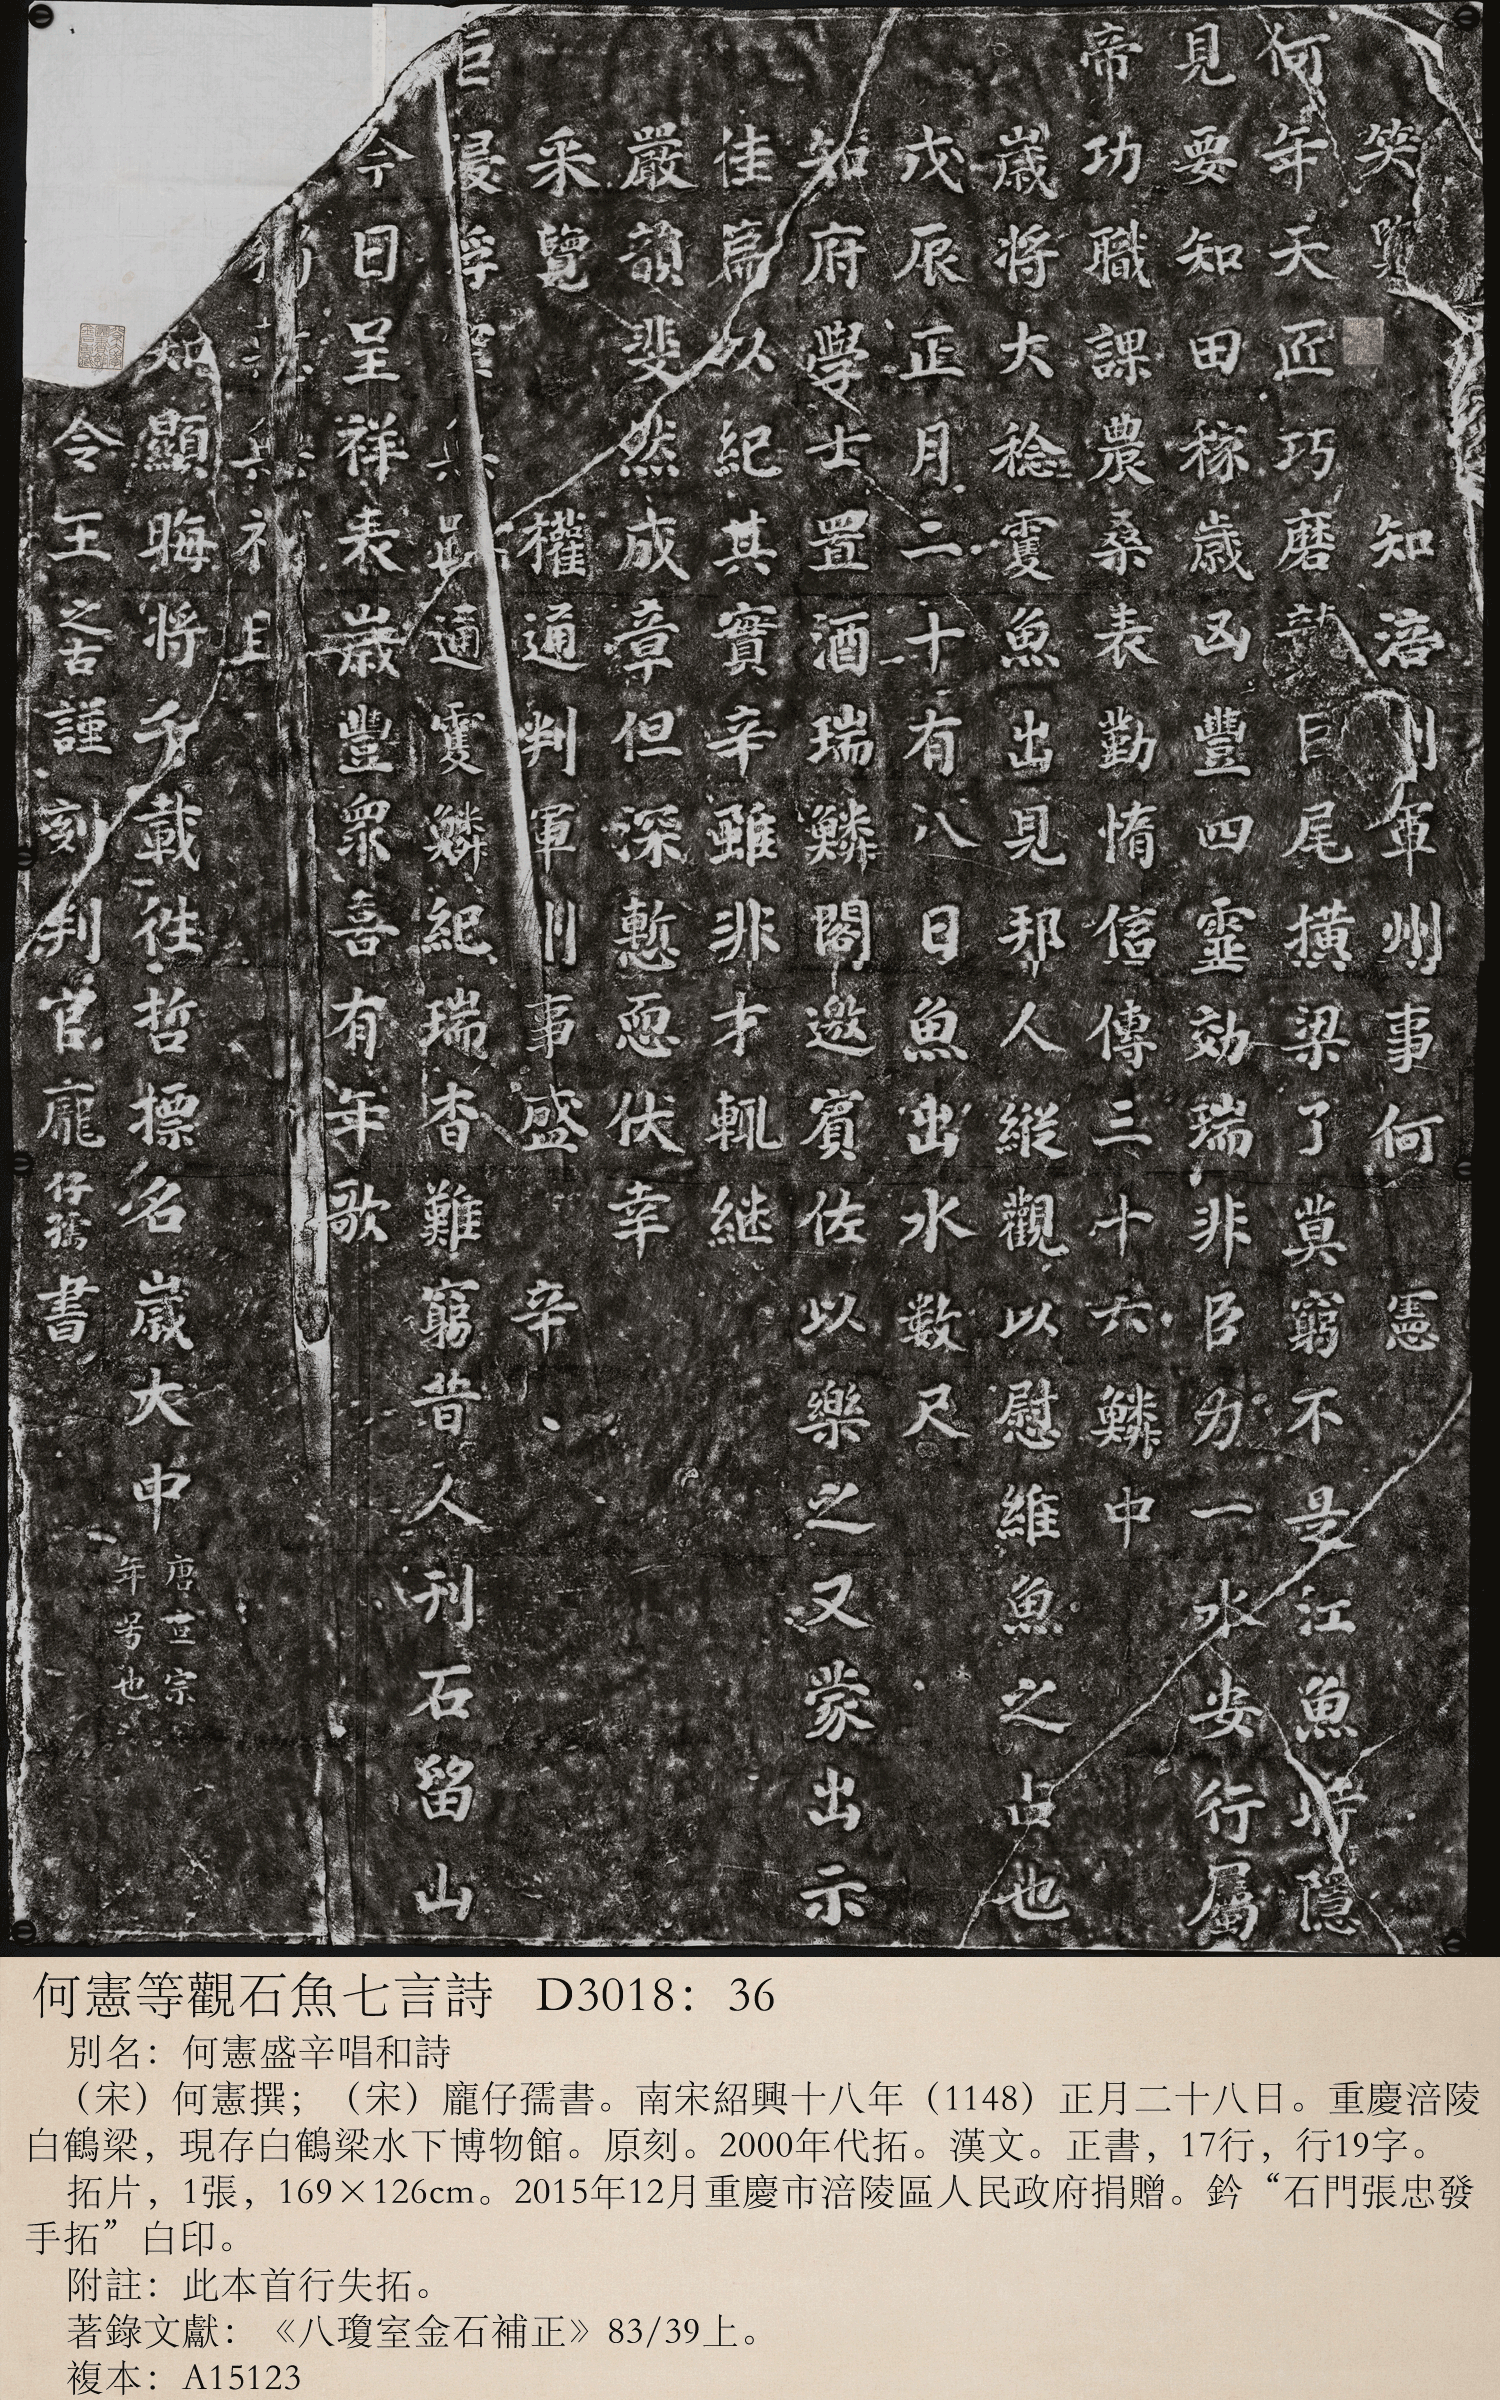 笑覽 知涪州軍州事何 憲
何年天匠巧磨礱巨尾橫梁了莫窮不是江魚時隱
見要知田稼歲凶豐四靈効瑞非臣力一水安行屬
帝功職課農桑表勸惰信傳三十六鱗中
歲將大稔雙魚出見邦人縱觀以慰維魚之占也
戊辰正月二十有八日魚出水數尺
知府學士置酒瑞鱗閣邀賓佐以樂之又蒙出示
佳篇以紀其實辛雖非才輒継
嚴韻斐然成章但深慙恧伏幸
采覽 權通判軍州事盛 辛
巨浸浮空無路通雙鱗紀瑞杳難窮昔人刊石留山
今日呈祥表歲豐衆喜有年歌
知顯晦將千載往哲標名歲大中
唐宣宗
年号也
令王之古謹刻判官龐仔孺書
何憲等觀石魚七言詩 D3018：36
別名：何憲盛辛唱和詩
（宋）何憲撰；（宋）龐仔孺書。南宋紹興十八年（1148）正月二十八日。重慶涪陵
白鶴梁，現存白鶴梁水下博物館。原刻。2000年代拓。漢文。正書，17行，行19字。
拓片，1張，169×126cm。2015年12月重慶市涪陵區人民政府捐贈。鈐“石門張忠發
手拓”白印。
附註：此本首行失拓。
著錄文獻：《八瓊室金石補正》83/39上。
複本：A15123